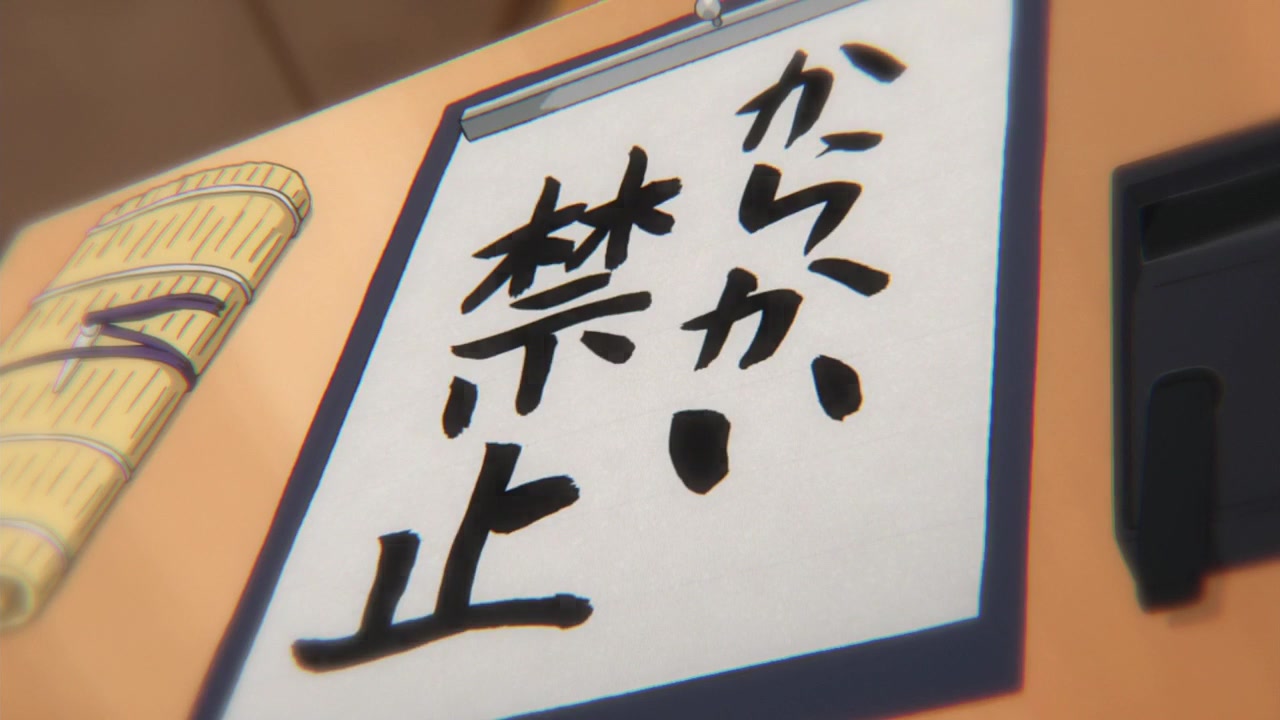 からかい
禁止